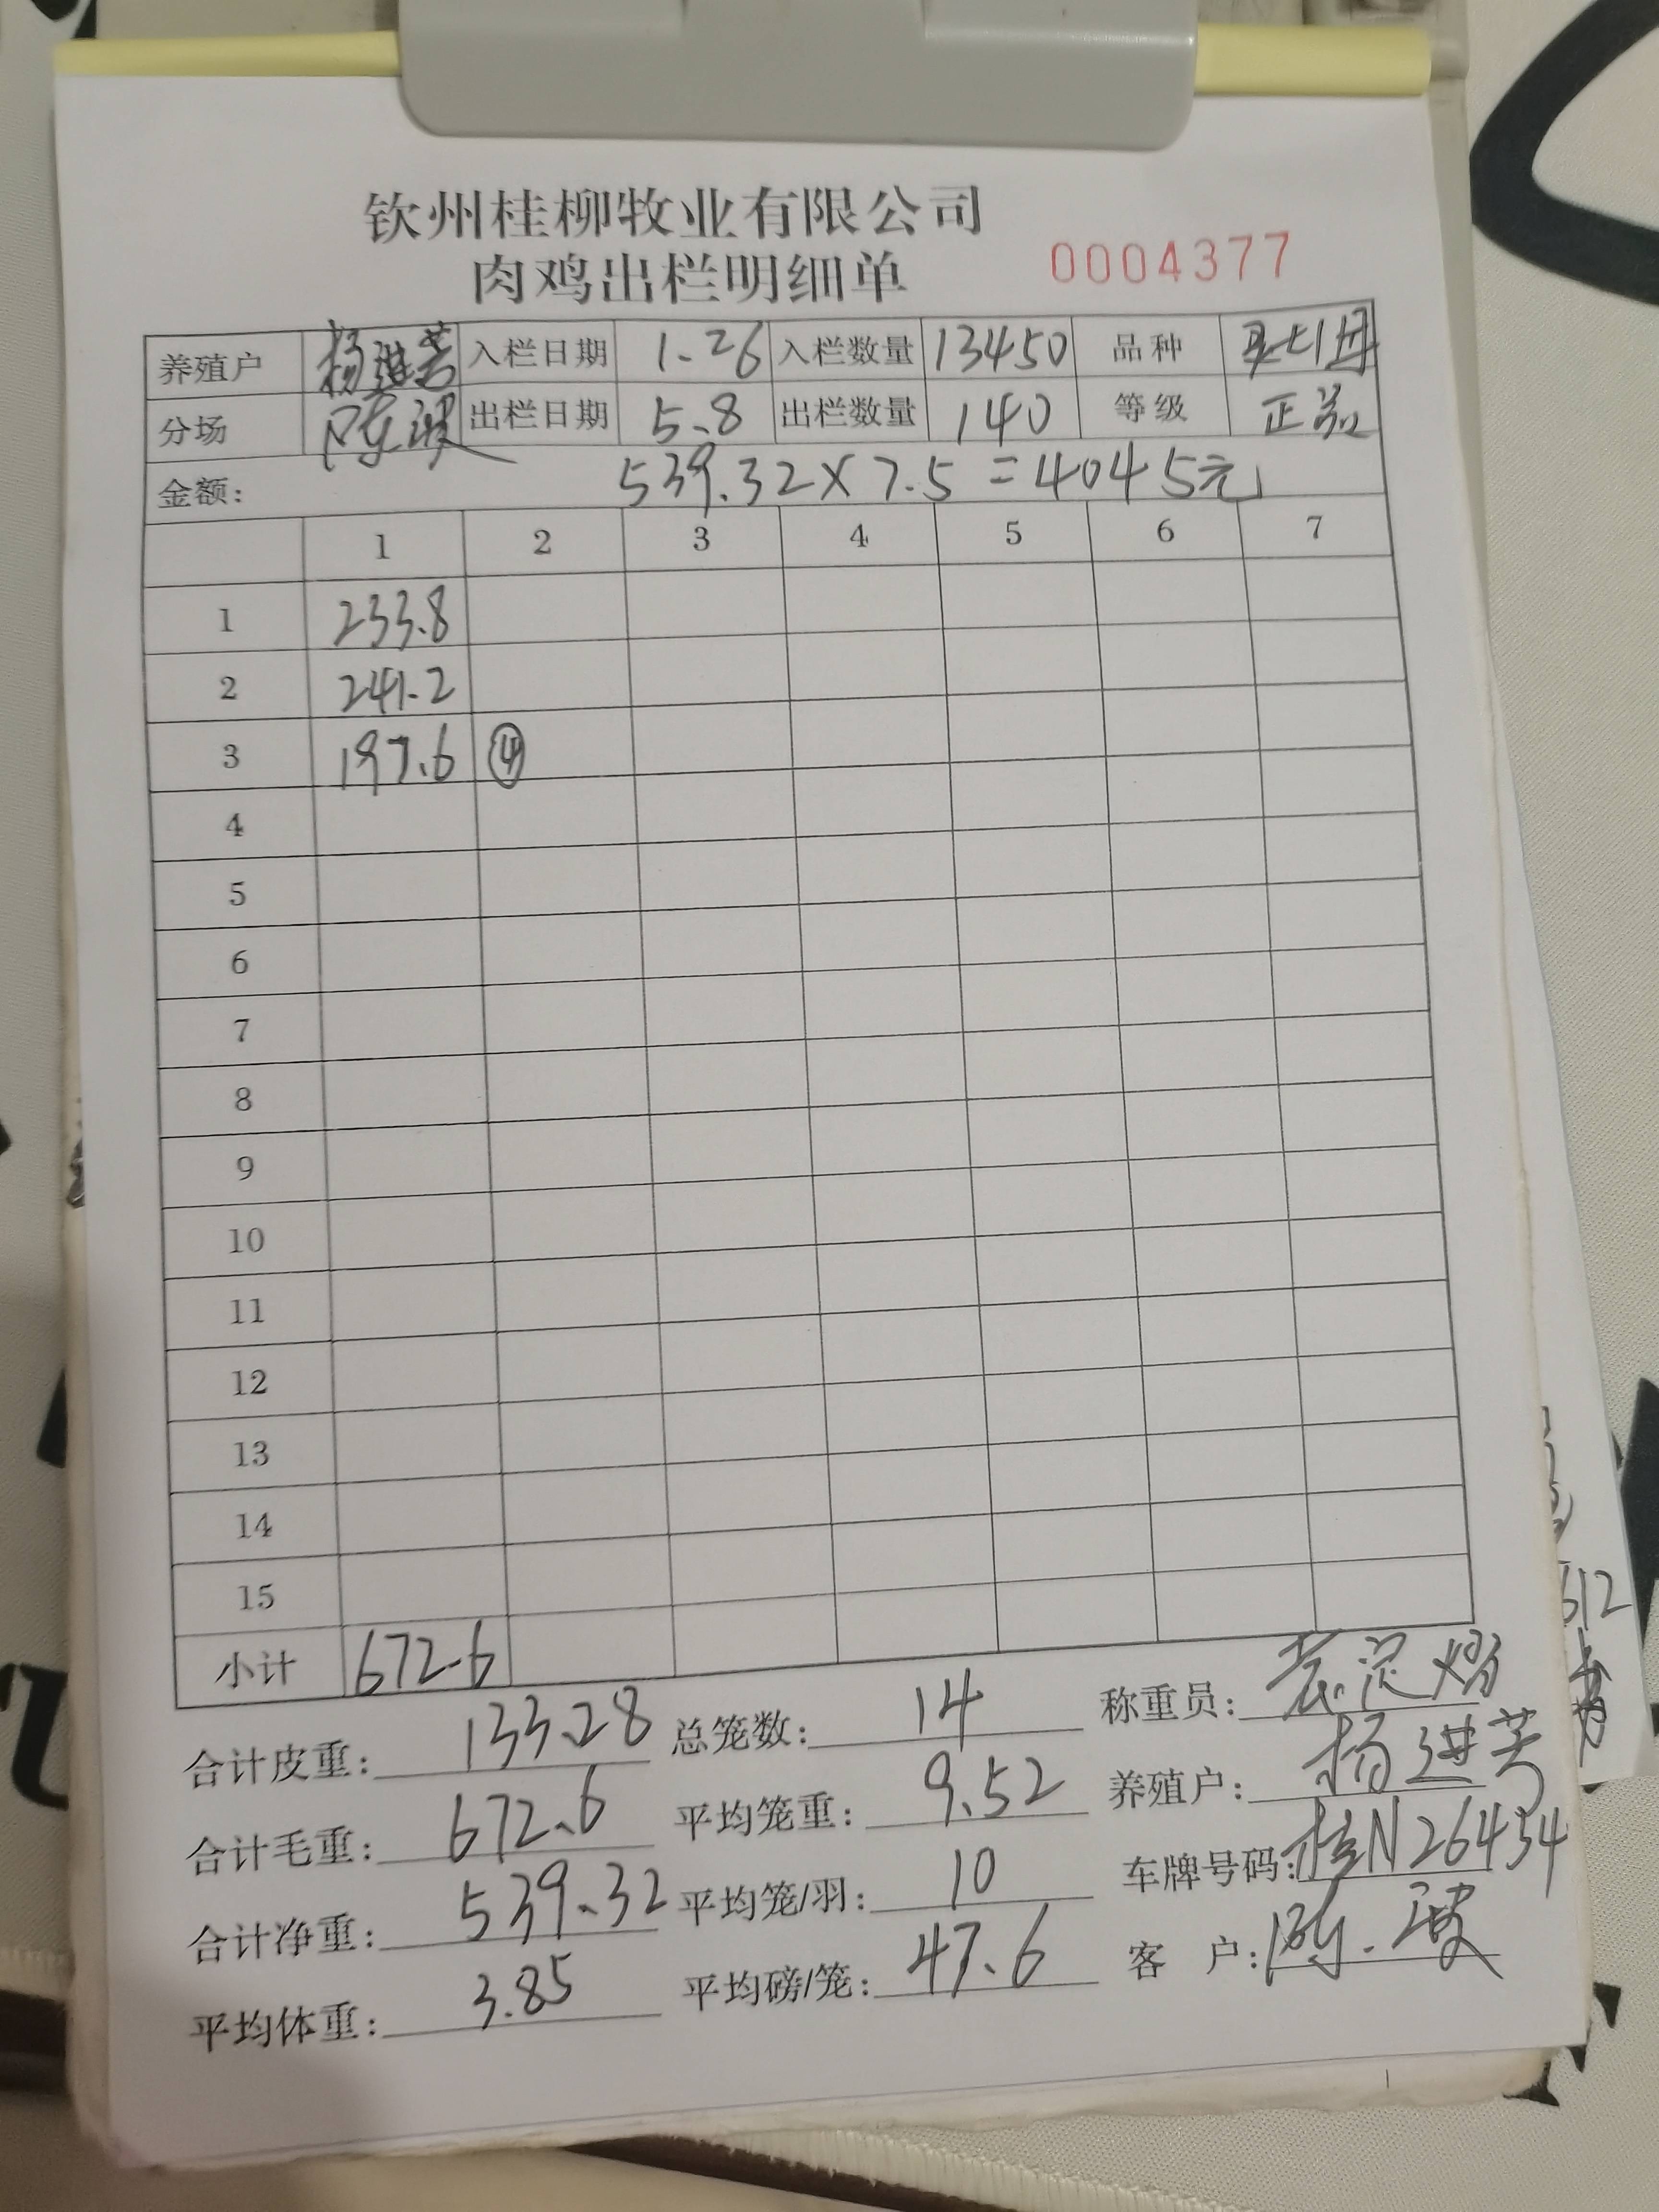 钦州桂柳牧业有限公司
肉鸡出栏明细单 0004377
养殖户 杨进芳 入栏日期 1.26 入栏数量 13450 品种
分场 陈波 出栏日期 5.8 出栏数量 140 等级 正品
金额: 539.32×7.5=4045元
1 2 3 4 5 6 7
1 233.8
2 241.2
3 197.6 ④
4
5
6
7
8
9
10
11
12
13
14
15
小计 672.6
合计皮重: 133.28 总笼数: 14 称重员:
合计毛重: 672.6 平均笼重: 9.52 养殖户: 杨进芳
合计净重: 539.32 平均笼/羽: 10 车牌号码: 桂N26454
平均体重: 3.85 平均磅/笼: 47.6 客 户: 陈波
612